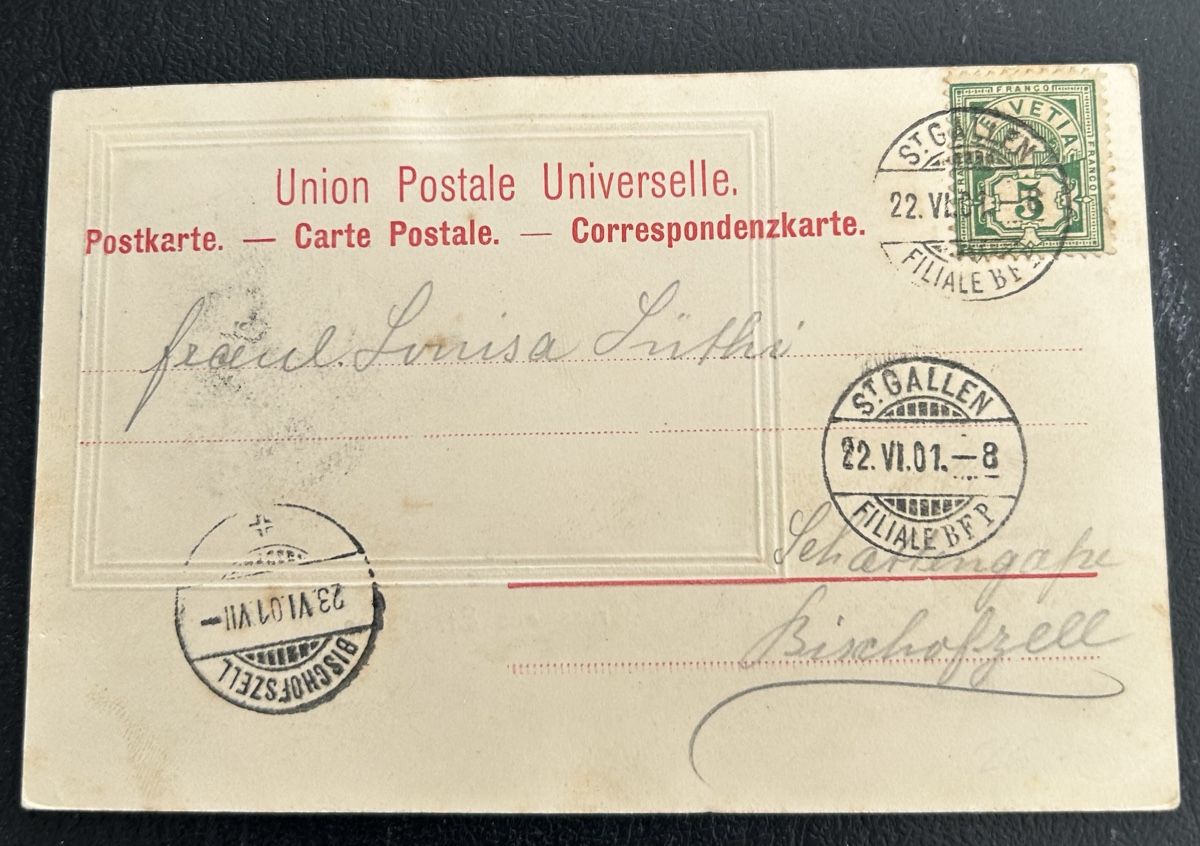 FRANCO
HELVETIA
FRANCO
FRANCO
5
ST. GALLEN
22. VI. 01
FILIALE BFP
Union Postale Universelle.
Postkarte. — Carte Postale. — Correspondenzkarte.
Louisa Lüthi
ST. GALLEN
22. VI. 01. – 8
FILIALE BFP
Bischofzell
23. VI. 01. VII –
BISCHOFSZELL